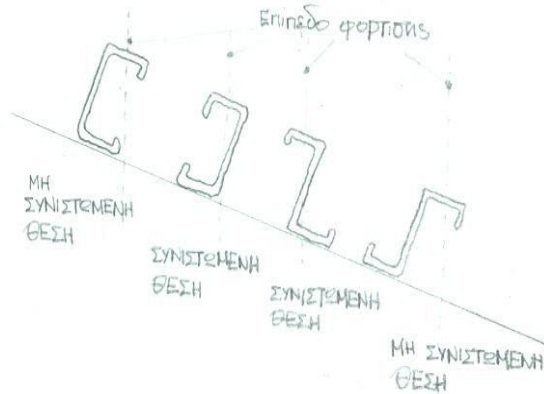 Επίπεδο φορτισης
ΜΗ
ΣΥΝΙΣΤΩΜΕΝΗ
ΘΕΣΗ
ΣΥΝΙΣΤΩΜΕΝΗ
ΘΕΣΗ
ΣΥΝΙΣΤΩΜΕΝΗ
ΘΕΣΗ
ΜΗ ΣΥΝΙΣΤΩΜΕΝΗ
ΘΕΣΗ